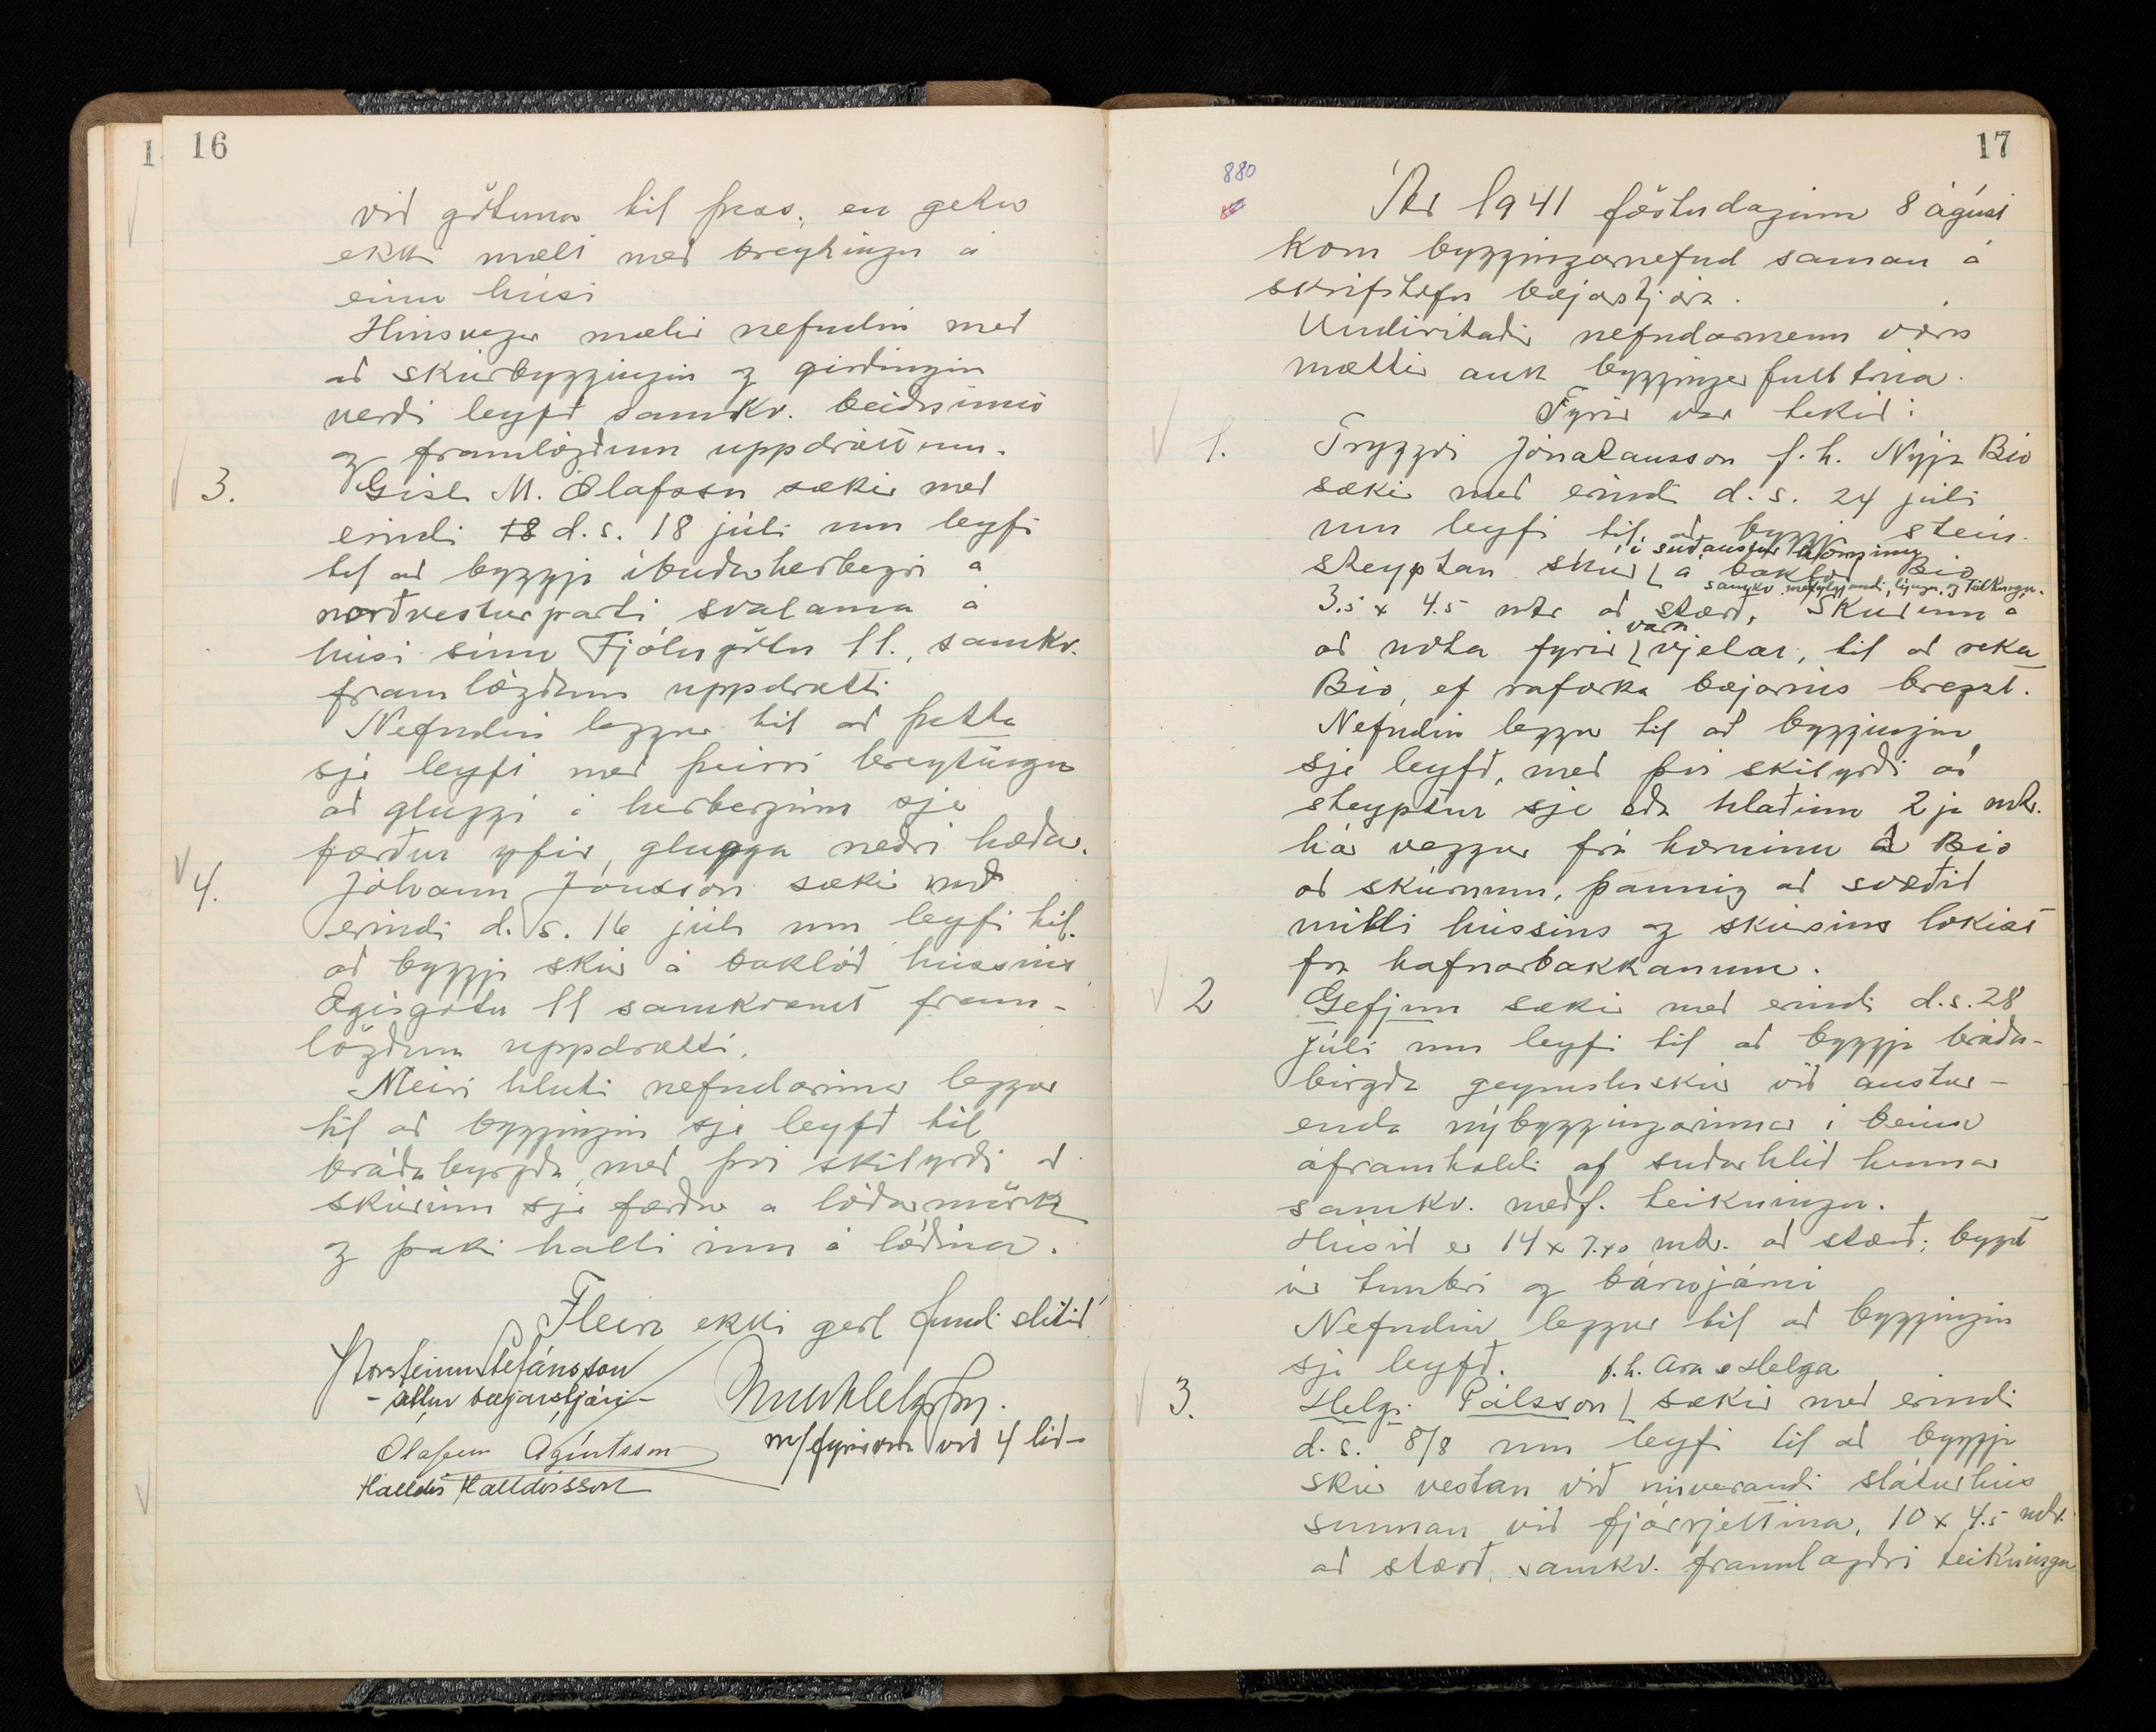 1
16
við götuna til þess, en getur
ekki mælt með breytingu á
einu húsi
Hinsvegar mælir nefndin með
að skúrbyggingin og girðingin
verði leyfð samkv. beiðninni
og framlögðum uppdráttum.
3. Gísli M. Ólafsson sækir með
erindi 18 d.s. 18 júli um leyfi
til að byggja íbúðarherbergi á
norðvesturparti svalanna á
húsi sínu Fjólugötu 11., samkv.
framlögðum uppdrætti
Nefndin leggur til að þetta
sje leyft með þeirri breytingu
að gluggi á herberginu sje
færður yfir glugga neðri hæðar.
4. Jóhann Jónsson sækir með
erindi d.s. 16 júli um leyfi til
að byggja skúr á baklóð hússins
Ægisgötu 11 samkvæmt fram-
lögðum uppdrætti.
Meiri hluti nefndarinnar leggur
til að byggingin sje leyfð til
bráðabyrgða, með því skilyrði að
skúrinn sje færður á lóðarmörk
og þaki halli inn á lóðina.
Fleira ekki gert fundi slitið
Þorsteinn Stefánsson
- settur bæjarstjóri -
m/fyrirvara við 4 lið -
Ólafur Ágústsson
Halldór Halldórsson
17
880
Ár 1941 föstudaginn 8 ágúst
kom byggingarnefnd saman á
skrifstofu bæjarstjóra.
Undirritaðir nefndarmenn voru
mættir auk byggingafulltrúa.
Fyrir var tekið:
1. Tryggvi Jónatansson f.h. Nýja Bio
sækir með erindi d.s. 24 júli
um leyfi til að byggja stein-
í suðaustur
steyptan skúr á baklóð Bio
samkv. meðfylgjandi
3.5 x 4.5 mtr að stærð. Skúrinn á
vara
að nota fyrir vjelar, til að reka
Bio, ef raforka bæjarins bregst.
Nefndin leggur til að byggingin
sje leyfð, með því skilyrði að
steyptur sje eða hlaðinn 2ja mtr.
hár veggur frá horninu á Bio
að skúrnum, þannig að svæðið
milli hússins og skúrsins lokist
frá hafnarbakkanum.
2 Gefjun sækir með erindi d.s. 28
júli um leyfi til að byggja bráða-
birgða geymsluskúr við austur-
enda nýbyggingarinnar í beinu
áframhaldi af suðurhlið hennar
samkv. meðf. teikningu.
Húsið er 14 x 7.40 mtr. að stærð; byggt
úr timbri og bárujárni
Nefndin leggur til að byggingin
sje leyfð.
f.h. Ara & Helga
3. Helgi Pálsson sækir með erindi
d.s. 8/8 um leyfi til að byggja
skúr vestan við núverandi sláturhús
sunnan við fjárrjettina, 10 x 4.5 mtr.
að stærð, samkv. framlagðri teikningu